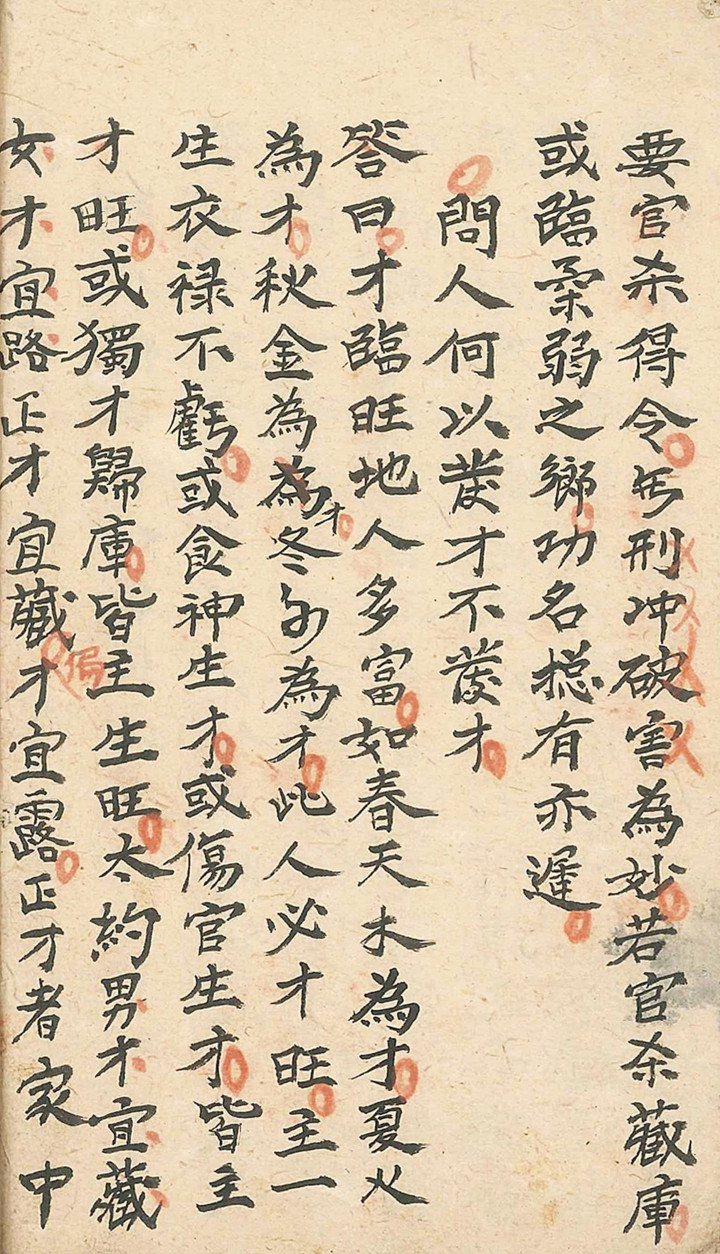 要官杀得令刑冲破害為妙若官杀藏庫
或臨柔弱之鄉功名摠有亦遲
問人何以發才不發才
答曰才臨旺地人多富如春天木為才夏火
為才秋金為為才冬水為才此人必才旺主一
生衣禄不虧或食神生才或傷官生才皆主
才旺或獨才歸庫皆主生旺大約男才宜藏
女才宜路正才宜藏偏才宜露正才者家中